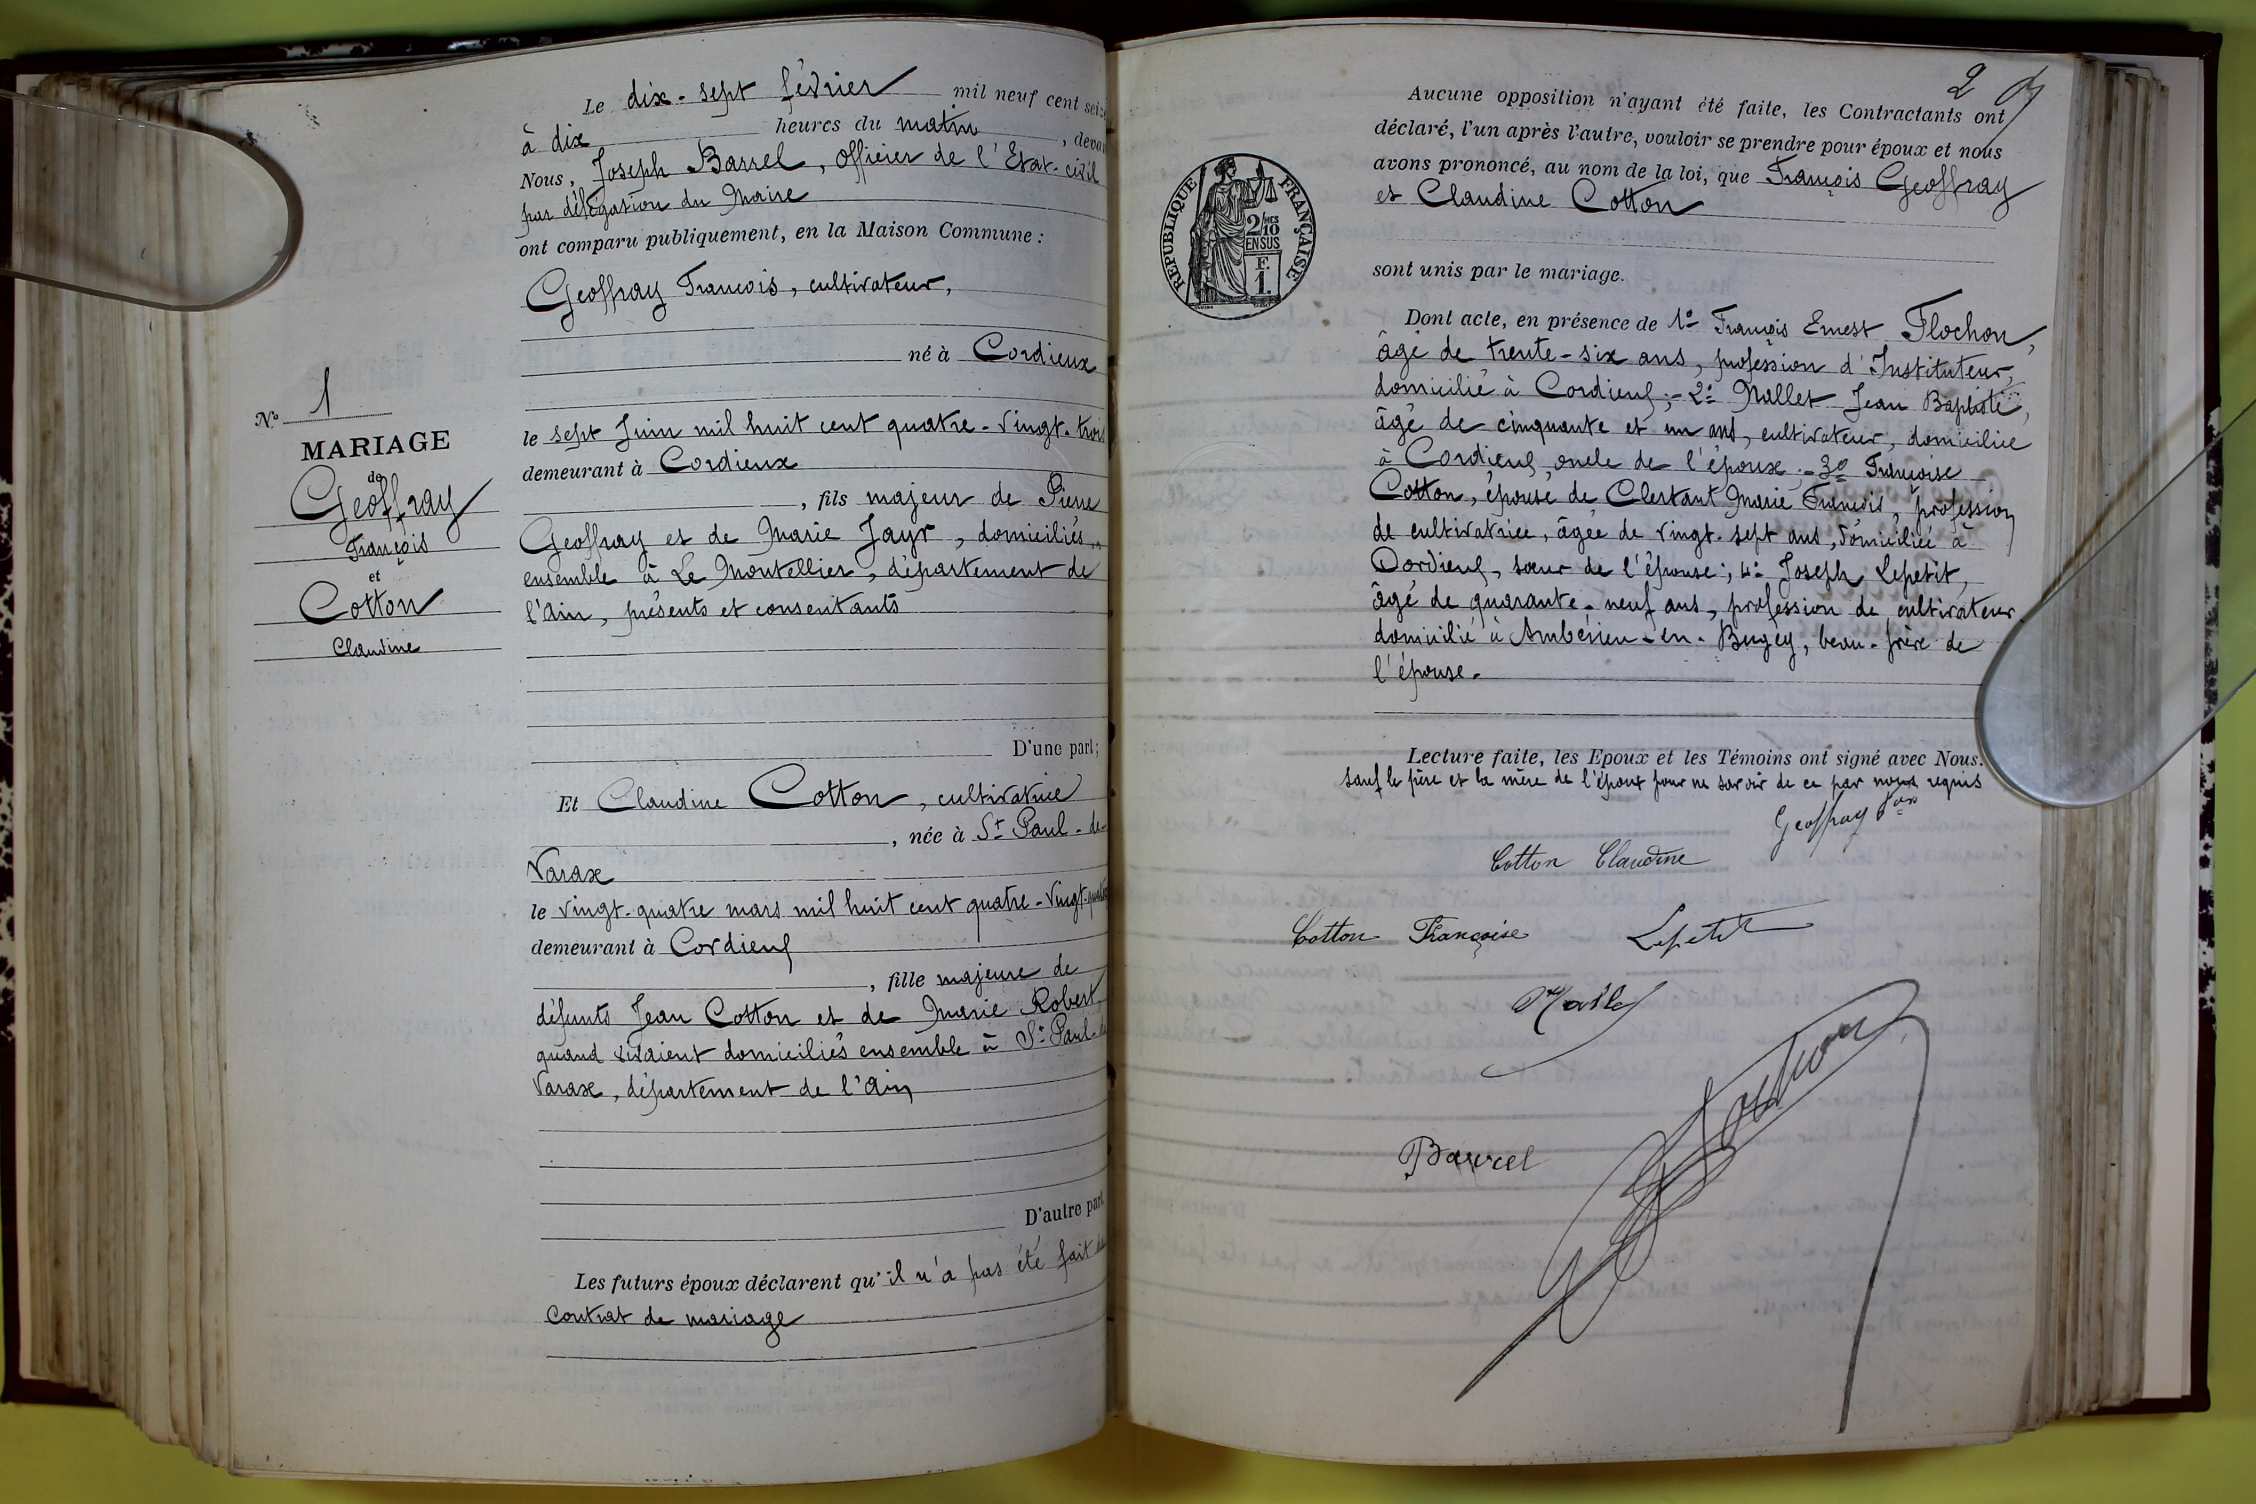 Le dix-sept février mil neuf cent seize
à dix heures du matin, devant
Nous, Joseph Barrel, officier de l'Etat-civil
par délégation du Maire
ont comparu publiquement, en la Maison Commune :
Geoffray François, cultivateur,
né à Cordieux
le sept Juin mil huit cent quatre-vingt-trois
demeurant à Cordieux
, fils majeur de Pierre
Geoffray et de Marie Jayr, domiciliés
ensemble à Le Montellier, département de
l'Ain, présents et consentants
D'une part;
Et Claudine Cotton, cultivatrice
, née à St Paul-de-
Varax
le vingt-quatre mars mil huit cent quatre-vingt-quatre
demeurant à Cordieux
, fille majeure de
défunts Jean Cotton et de Marie Robert,
quand vivaient domiciliés ensemble à St Paul-de
Varax, département de l'Ain
D'autre part
Les futurs époux déclarent qu'il n'a pas été fait de
contrat de mariage
No 1
MARIAGE
de
Geoffray
François
et
Cotton
Claudine
2
Aucune opposition n'ayant été faite, les Contractants ont
déclaré, l'un après l'autre, vouloir se prendre pour époux et nous
avons prononcé, au nom de la loi, que François Geoffray
et Claudine Cotton
sont unis par le mariage.
REPUBLIQUE FRANÇAISE
2/10 MES
EN SUS
F.
1.
Dont acte, en présence de 1o François Ernest Flochon,
âgé de trente-six ans, profession d'Instituteur,
domicilié à Cordieux ;- 2o Mallet Jean Baptiste,
âgé de cinquante et un ans, cultivateur, domicilié
à Cordieux, oncle de l'époux ;- 3o Françoise
Cotton, épouse de Clertant Marie François, profession
de cultivatrice, âgée de vingt-sept ans, domiciliée à
Cordieux, sœur de l'épouse; 4o Joseph Lepetit,
âgé de quarante-neuf ans, profession de cultivateur
domicilié à Ambérieu-en-Bugey, beau-frère de
l'épouse.
Lecture faite, les Epoux et les Témoins ont signé avec Nous.
sauf le père et la mère de l'époux pour ne savoir de ce par nous requis
Geoffray fois
Cotton Claudine
Cotton Françoise Lepetit
Barrel
Flochon